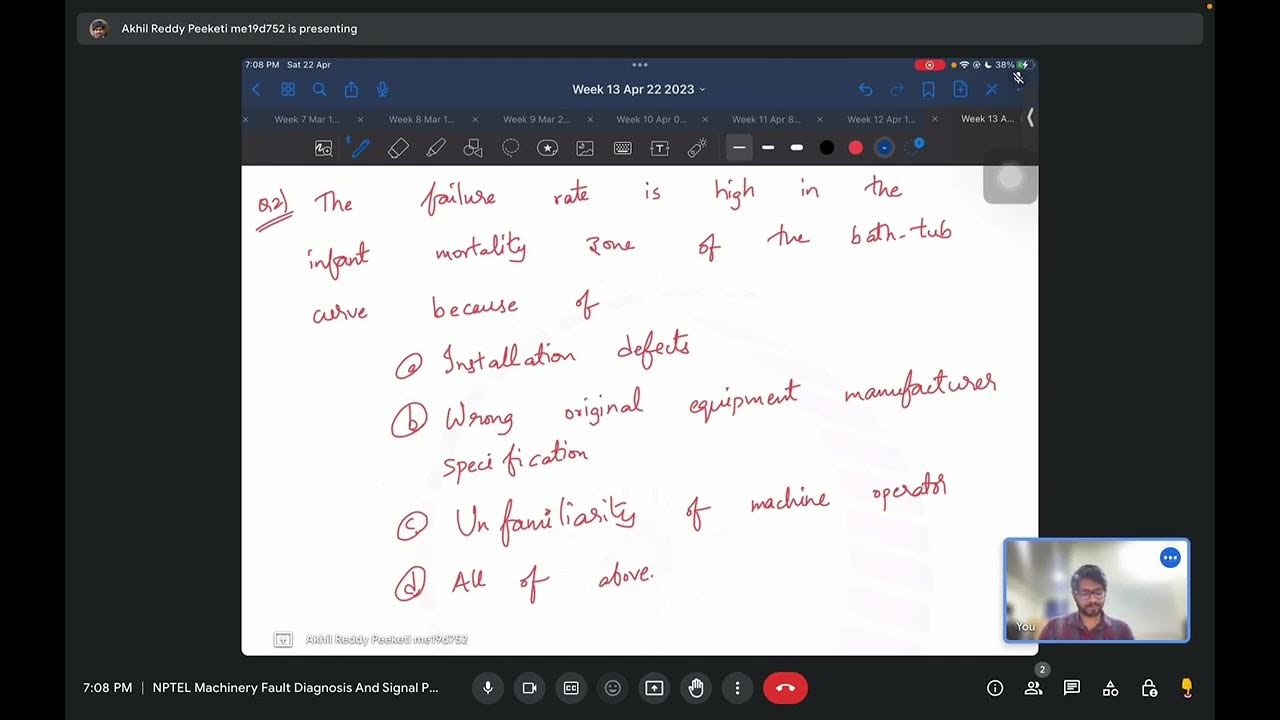 Akhil Reddy Peeketi me19d752 is presenting
7:08 PM Sat 22 Apr
38%
Week 13 Apr 22 2023
Week 7 Mar 1... Week 8 Mar 1... Week 9 Mar 2... Week 10 Apr 0... Week 11 Apr 8... Week 12 Apr 1... Week 13 A...
Q2) The failure rate is high in the
infant mortality zone of the bath-tub
curve because of
a Installation defects
b Wrong original equipment manufacturer
specification
c. Unfamiliarity of machine operator
d All of above.
You
Akhil Reddy Peeketi me19d752
2
7:08 PM | NPTEL Machinery Fault Diagnosis And Signal P...